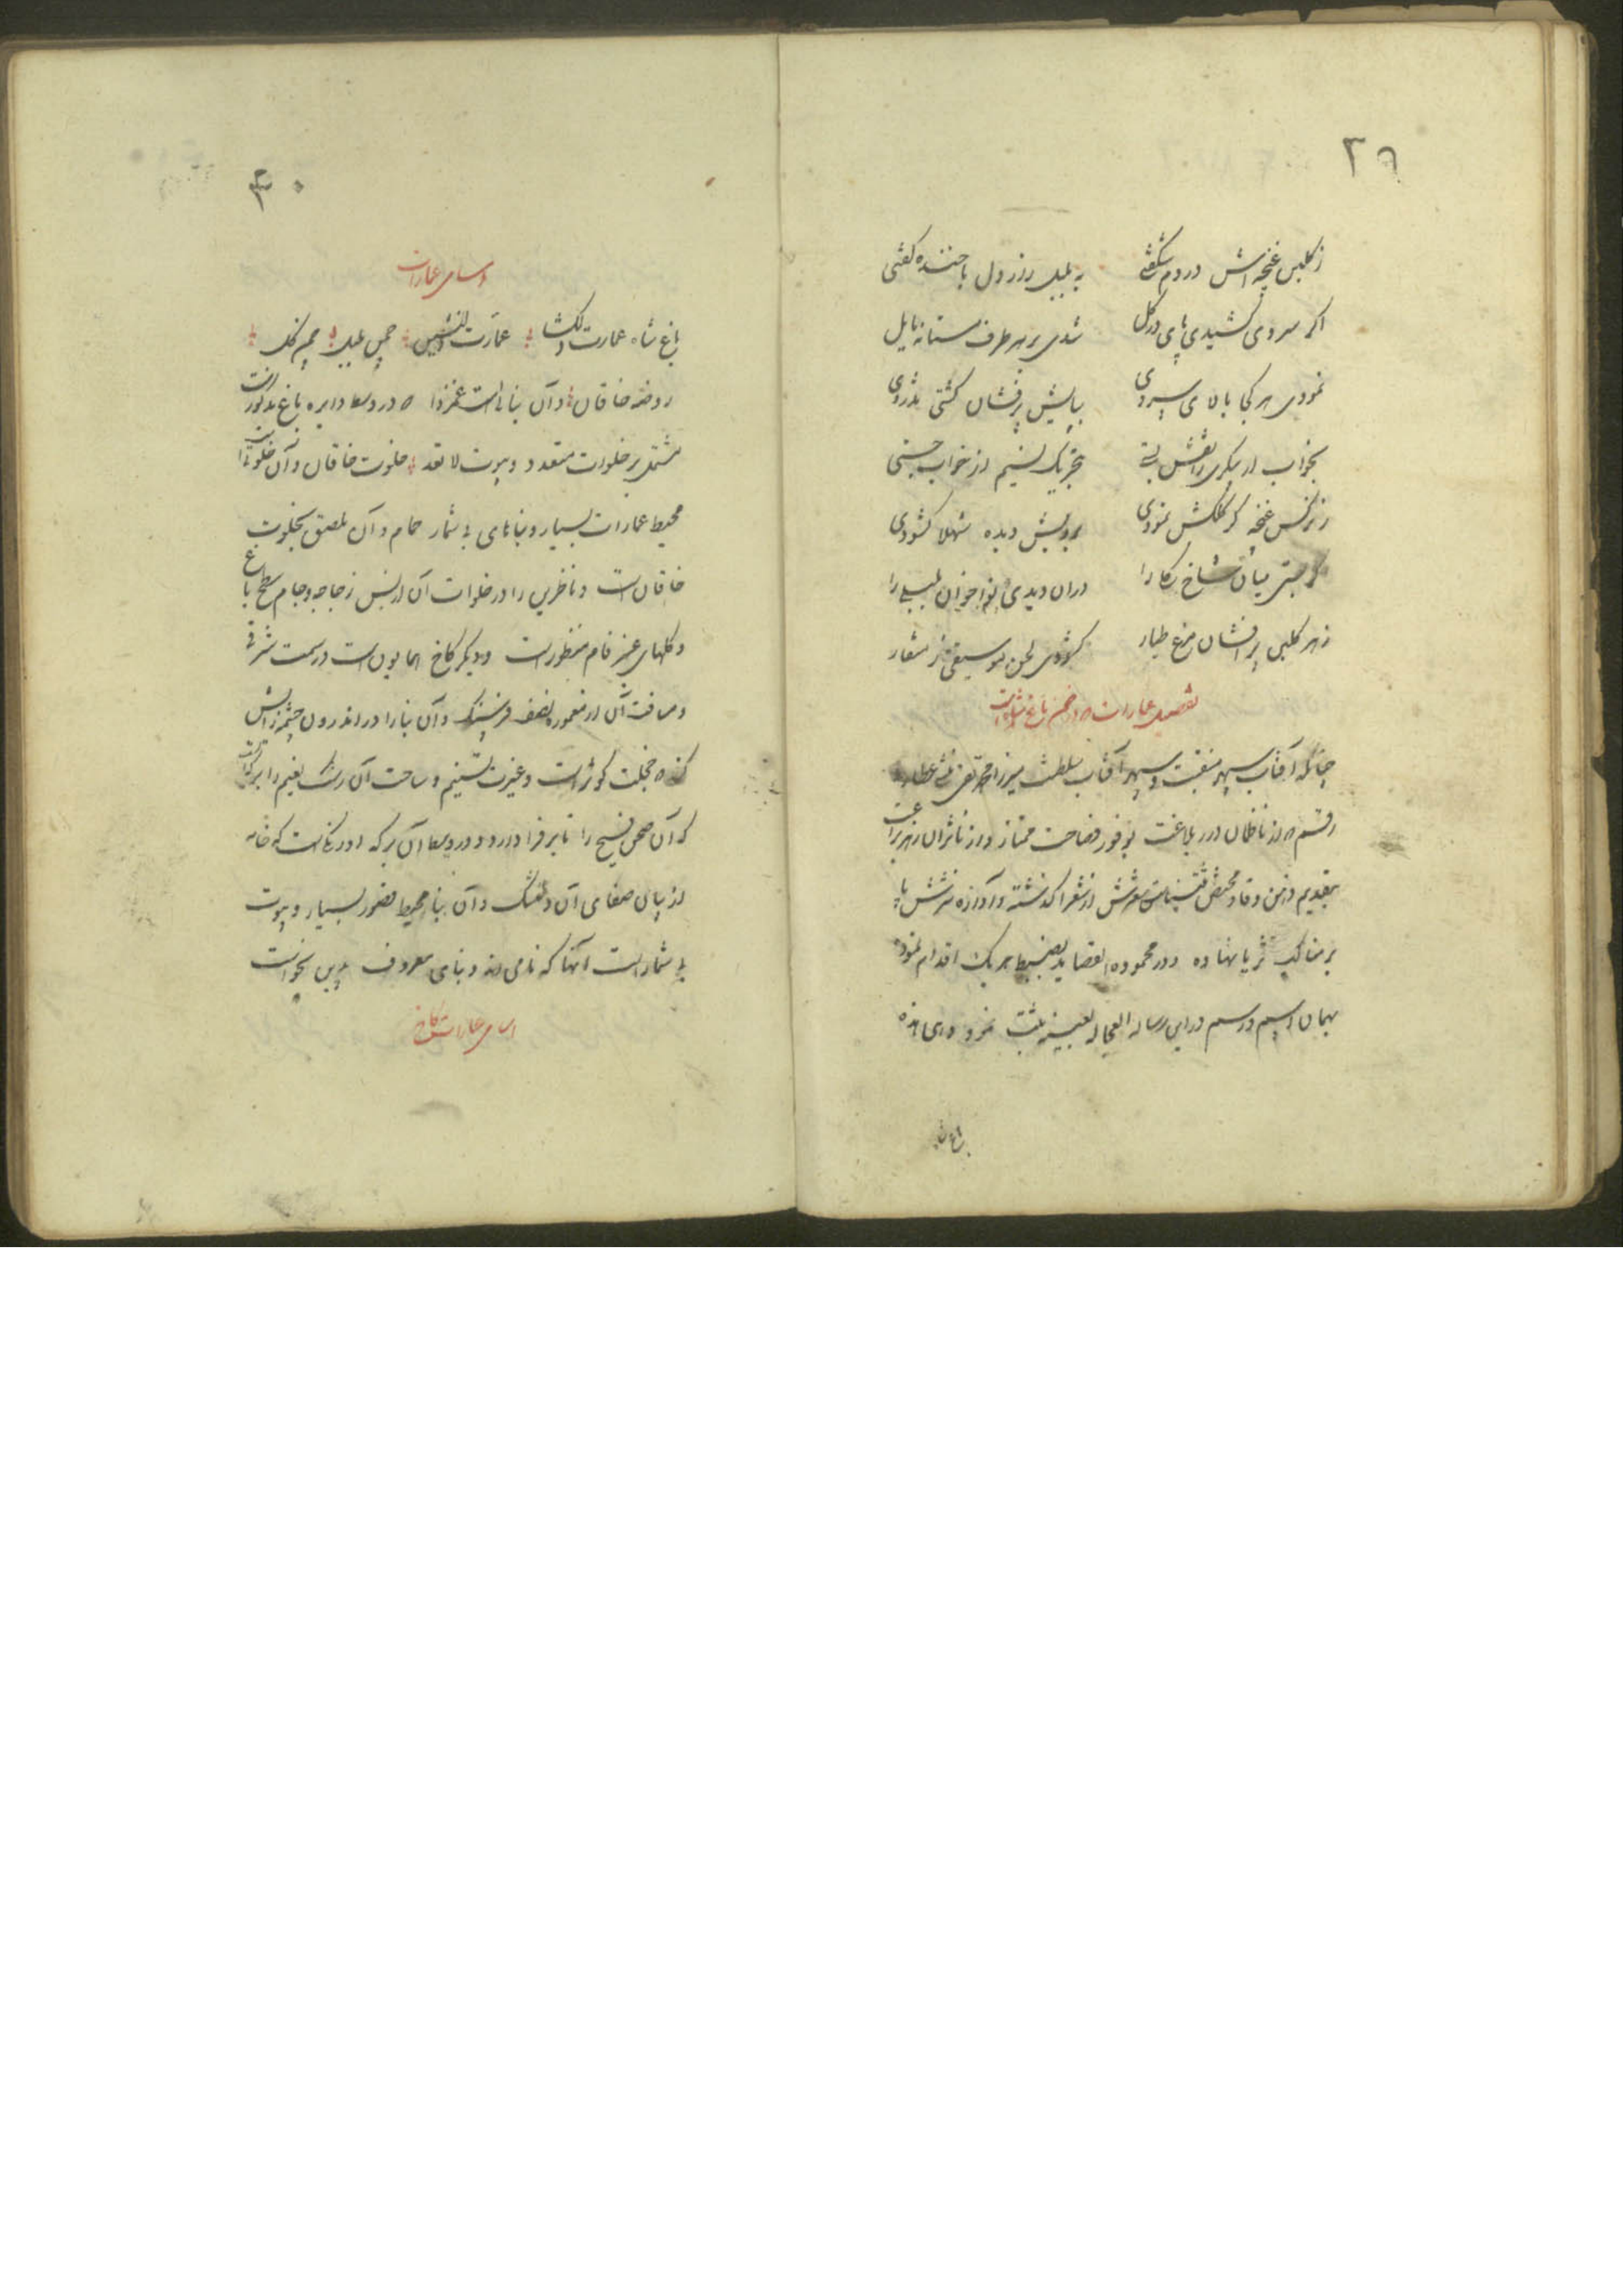 ۲۹
ز گلبن غنچه‌اش در دم شگفتی به بلبل راز دل با خنده گفتی
اگر سروی کشیدی پای در گل شدی بر هر طرف مستانه مایل
نمودی هر کجا بالای سروی بپایش پرفشان گشتی تذروی
بخواب ار پیکری را نقش بستی بتحریک نسیم از خواب جستی
ز نرگس غنچه گر کلکش نمودی برویش دیده شهلا گشودی
گر بستی میان شاخ را در آن دیدی نواخوان بلبلی را
ز هر گلبن پرافشان مرغ طیار کشودی لحن موسیقی ز منقار
تفصیل عمارات در ضمن باغ شاه است
چنانکه آفتاب سپهر منقبت و سپهر آفتاب سلطنت میرزا محمد تقی منشی عطارد
رقم که از ناظمان درر بلاغت بوفور فصاحت ممتاز و از ناثران براعت
بتقدیم ذهن وقاد شعرش از شعرا گذشته و آوازه نثرش پا
بر مناکب ثریا نهاده و در محموده القصاید بضبط هر یک اقدام نموده
بهمان اسم و رسم در این رساله العجاله بعینه ثبت نمود و هی هذه
باغ شاه
۳۰
اسامی عمارات
باغ شاه عمارت دلگشا عمارت دلنشین چمن بلبل چمن گل
روضه خاقان و آن بنائی است غمزدا که در وسط دایره باغ مذکور است
مشتمل بر خلوات متعدد و بیوت لا تعد خلوت خاقان و آن خلوتی است
محیط عمارات بسیار و بناهای بی شمار حمام و آن ملصق بخلوت
خاقان است و ناظرین را در خلوات آن از پس زجاجه و جام سطح باغ
و گلهای عنبر فام منظور است و دیگر کاخ همایون است در سمت شرقی
و مسافت آن از معموره نصف فرسنگ و آن بنا را در اندرون چشمه زایش
کننده خجلت کوثر است و غیرت تسنیم و ساحت آن رشک نعیم را برکه ایست
که آن صحن فسیح را تا بر فرا دارد و در وسط آن برکه اورنگی است که خامه
از بیان صفای آن دلتنگ و آن بنا محیط قصور بسیار و بیوت
بی شمار است آنها که نامی اند و بنای معروف بدین نحو است
اسامی عمارات کاخ